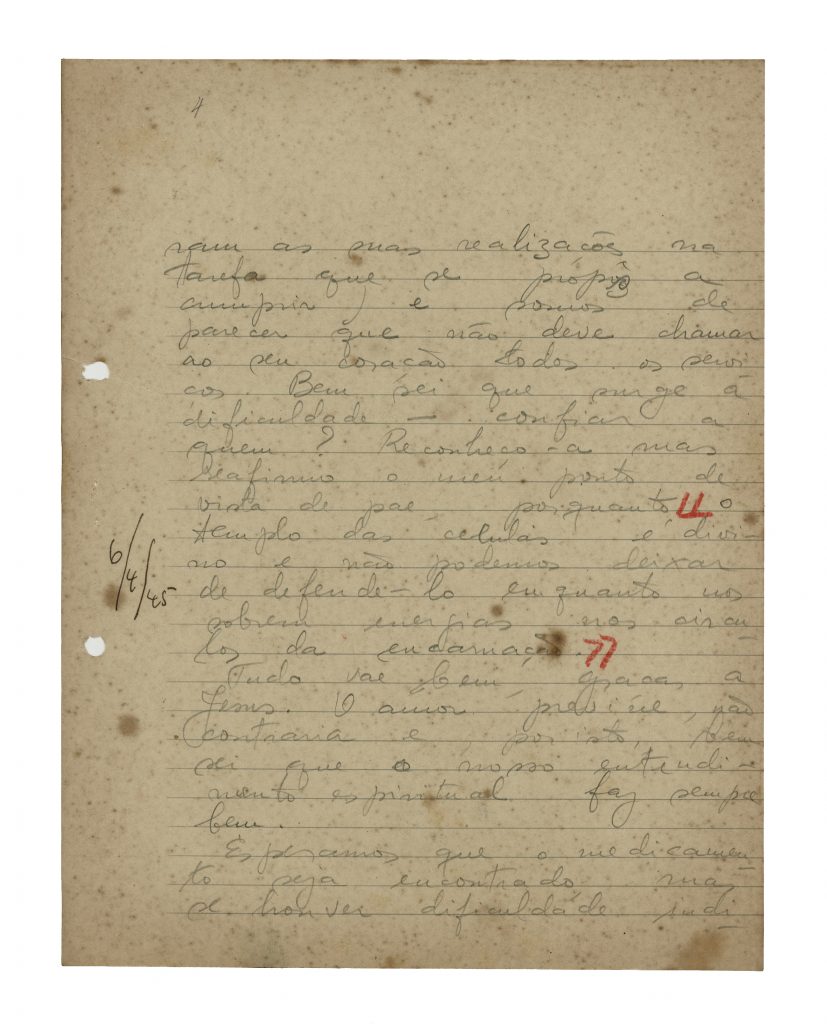 4
ram as suas realizações na
tarefa que se propôs a
cumprir) e somos de
parecer que não deve chamar
ao seu coração todos os servi
cos. Bem sei que surge á
dificuldade — confiar a
quem? Reconheço-a mas
reafirmo o meu ponto de
vista de pae, porquanto "o
templo das celulas é divi-
no e não podemos deixar
de defende-lo enquanto nos
sobrem energias nos circu-
los da encarnação."
6/4/45
Tudo vae bem, graças a
Jesus. O amor previne, não
contraria e, por isto, bem
sei que o nosso entendi-
mento espiritual faz sempre
bem.
Esperamos que o medicamen-
to seja encontrado mas
se houver dificuldade indi-